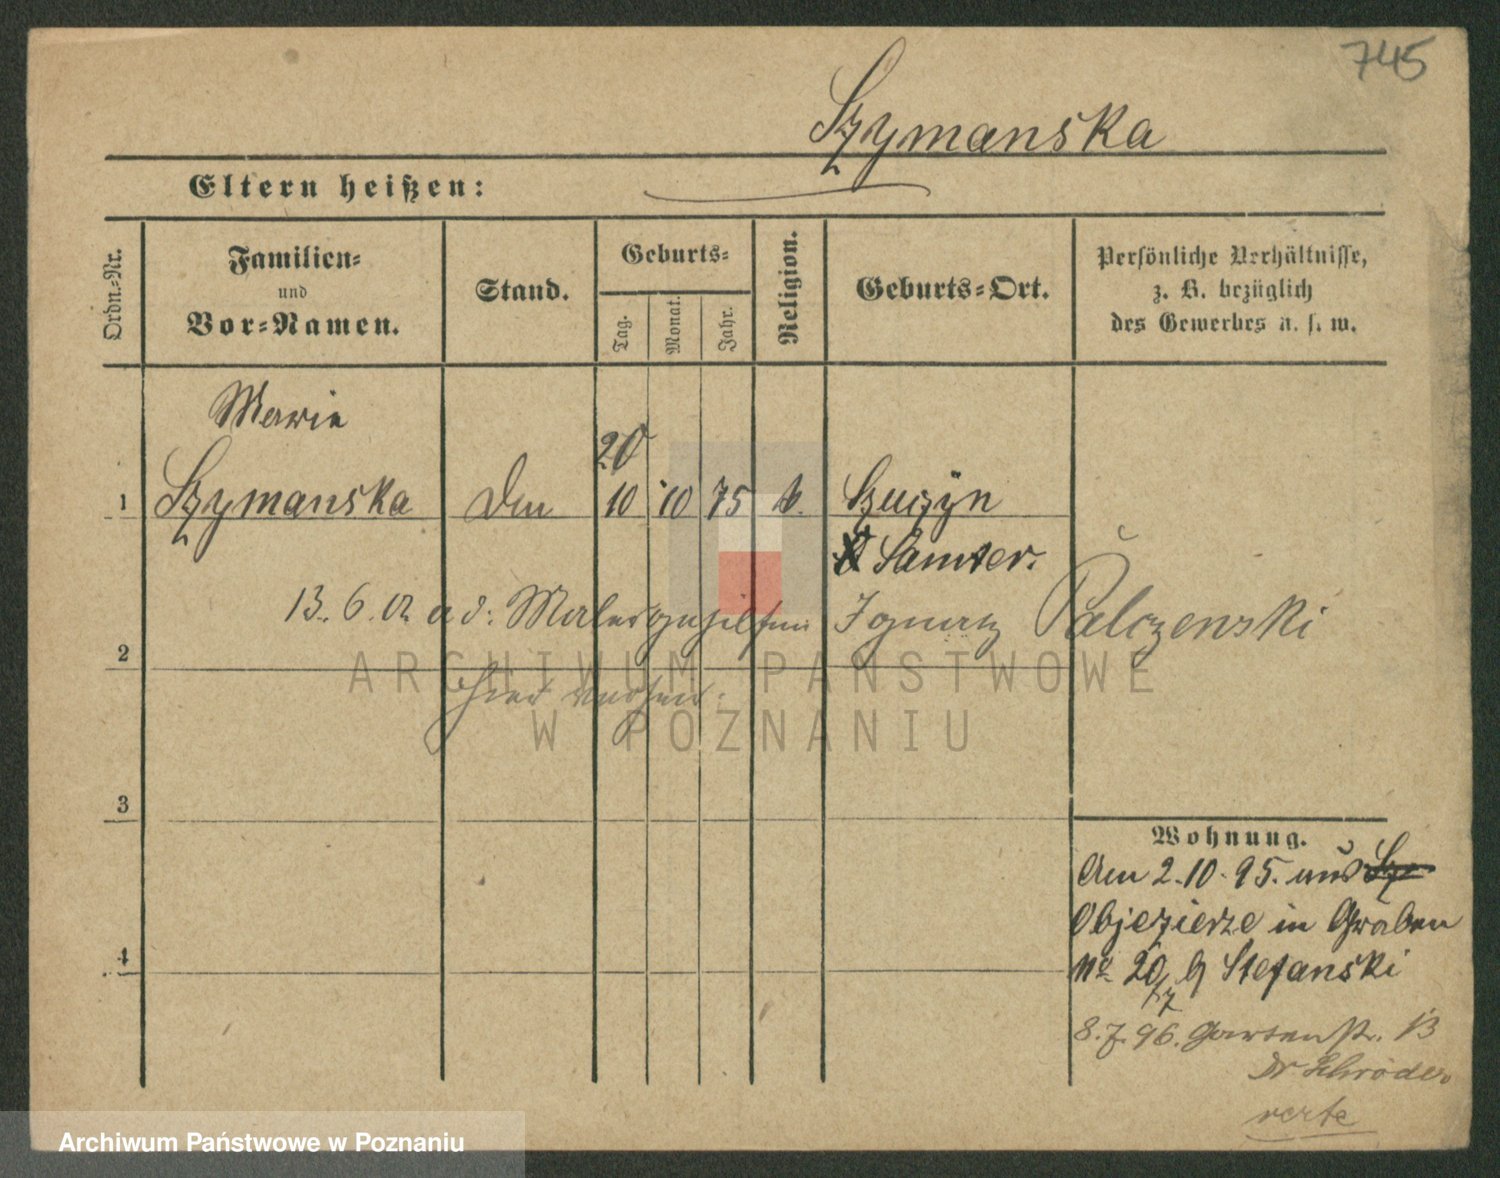 745
Szymanska
Eltern heißen:
Ordn.-Nr.
Familien- und Vor-Namen.
Stand.
Geburts-
Tag.
Monat.
Jahr.
Religion.
Geburts-Ort.
Persönliche Verhältnisse,
z. B. bezüglich
des Gewerbes u. s. w.
Marie
20
1 Szymanska 10 10 75 k.
Samter.
13. 6. 02 a d. Malergehilfen Ignatz Palczenski
2
hier verh
3
4
Wohnung.
Am 2.10.95. aus Sz
Objezierze in Graben
No 20 b Stefanski
8.7.96. Gartenstr. 13
Dr Schröder
verte
ARCHIWUM PAŃSTWOWE
W POZNANIU
Archiwum Państwowe w Poznaniu